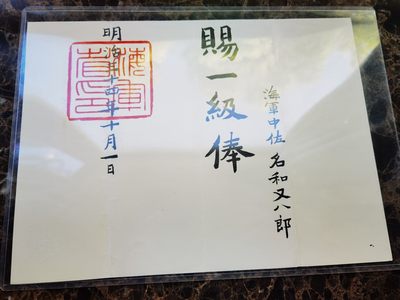 海軍中佐 名和又八郎
賜一級俸
明治三十四年十月一日
海軍
省印